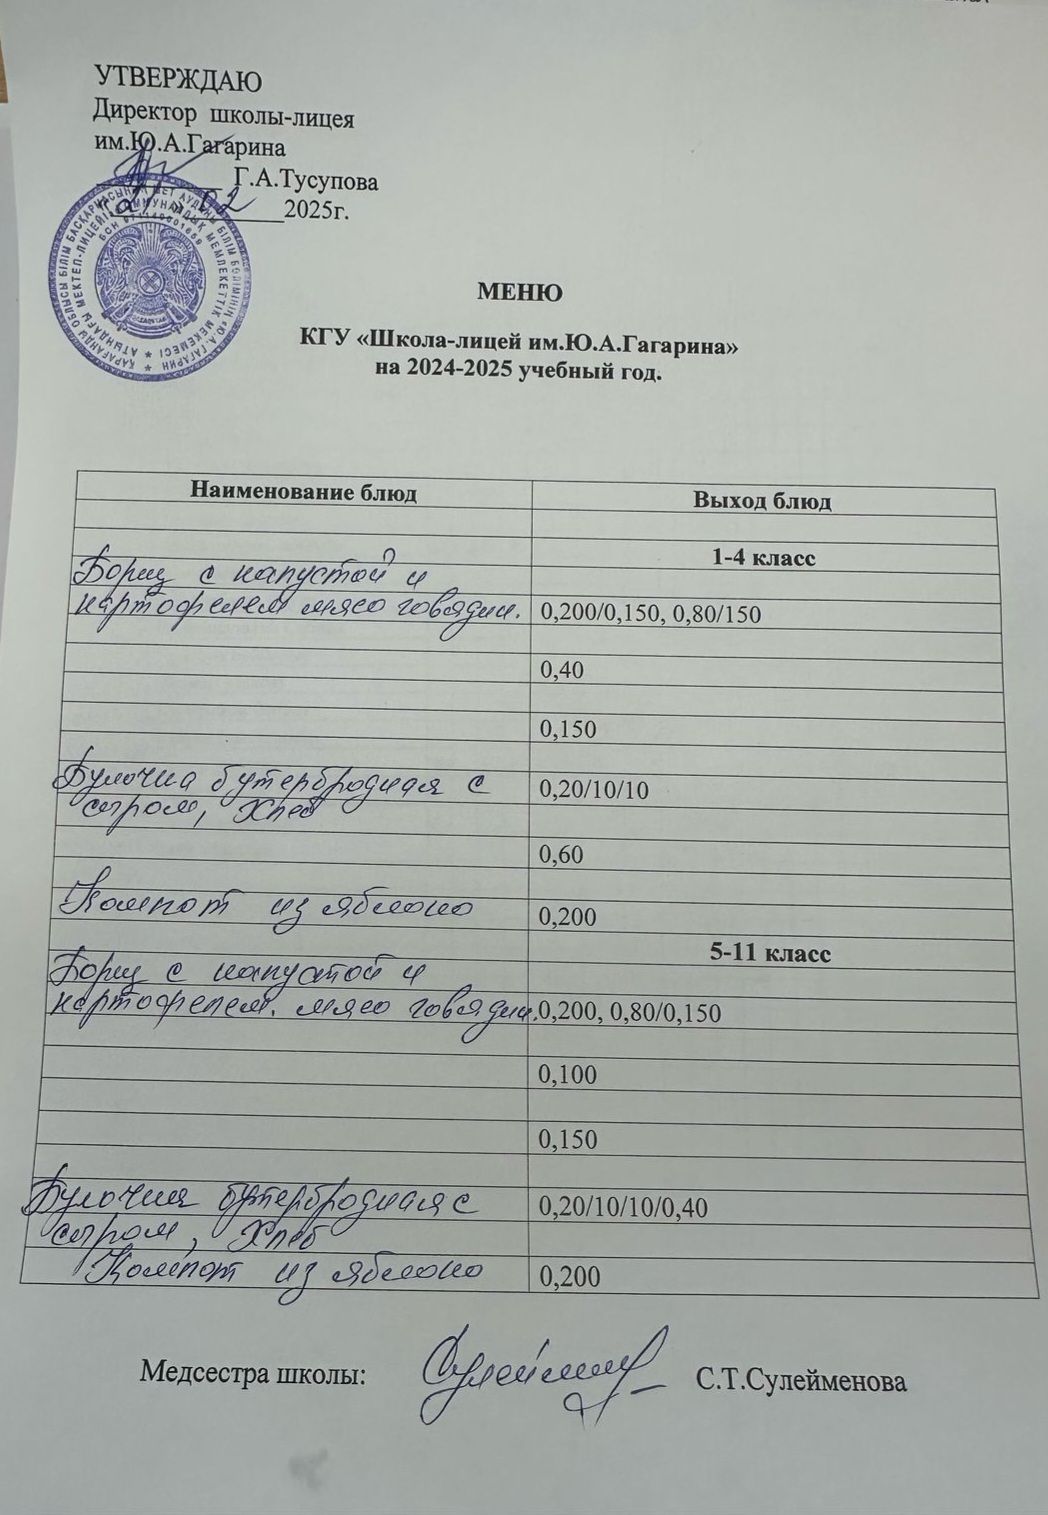 УТВЕРЖДАЮ
Директор школы-лицея
им.Ю.А.Гагарина
Г.А.Тусупова
02 2025г.
МЕНЮ
КГУ «Школа-лицей им.Ю.А.Гагарина»
на 2024-2025 учебный год.
Наименование блюд Выход блюд
1-4 класс
Борщ с капустой и
картофелем мясо говядин. 0,200/0,150, 0,80/150
0,40
0,150
Булочка бутербродная с 0,20/10/10
сыром, Хлеб
0,60
Компот из яблоко 0,200
5-11 класс
Борщ с капустой и
картофелем. мясо говядин. 0,200, 0,80/0,150
0,100
0,150
Булочка бутербродная с 0,20/10/10/0,40
сыром, Хлеб
Компот из яблоко 0,200
Медсестра школы: С.Т.Сулейменова